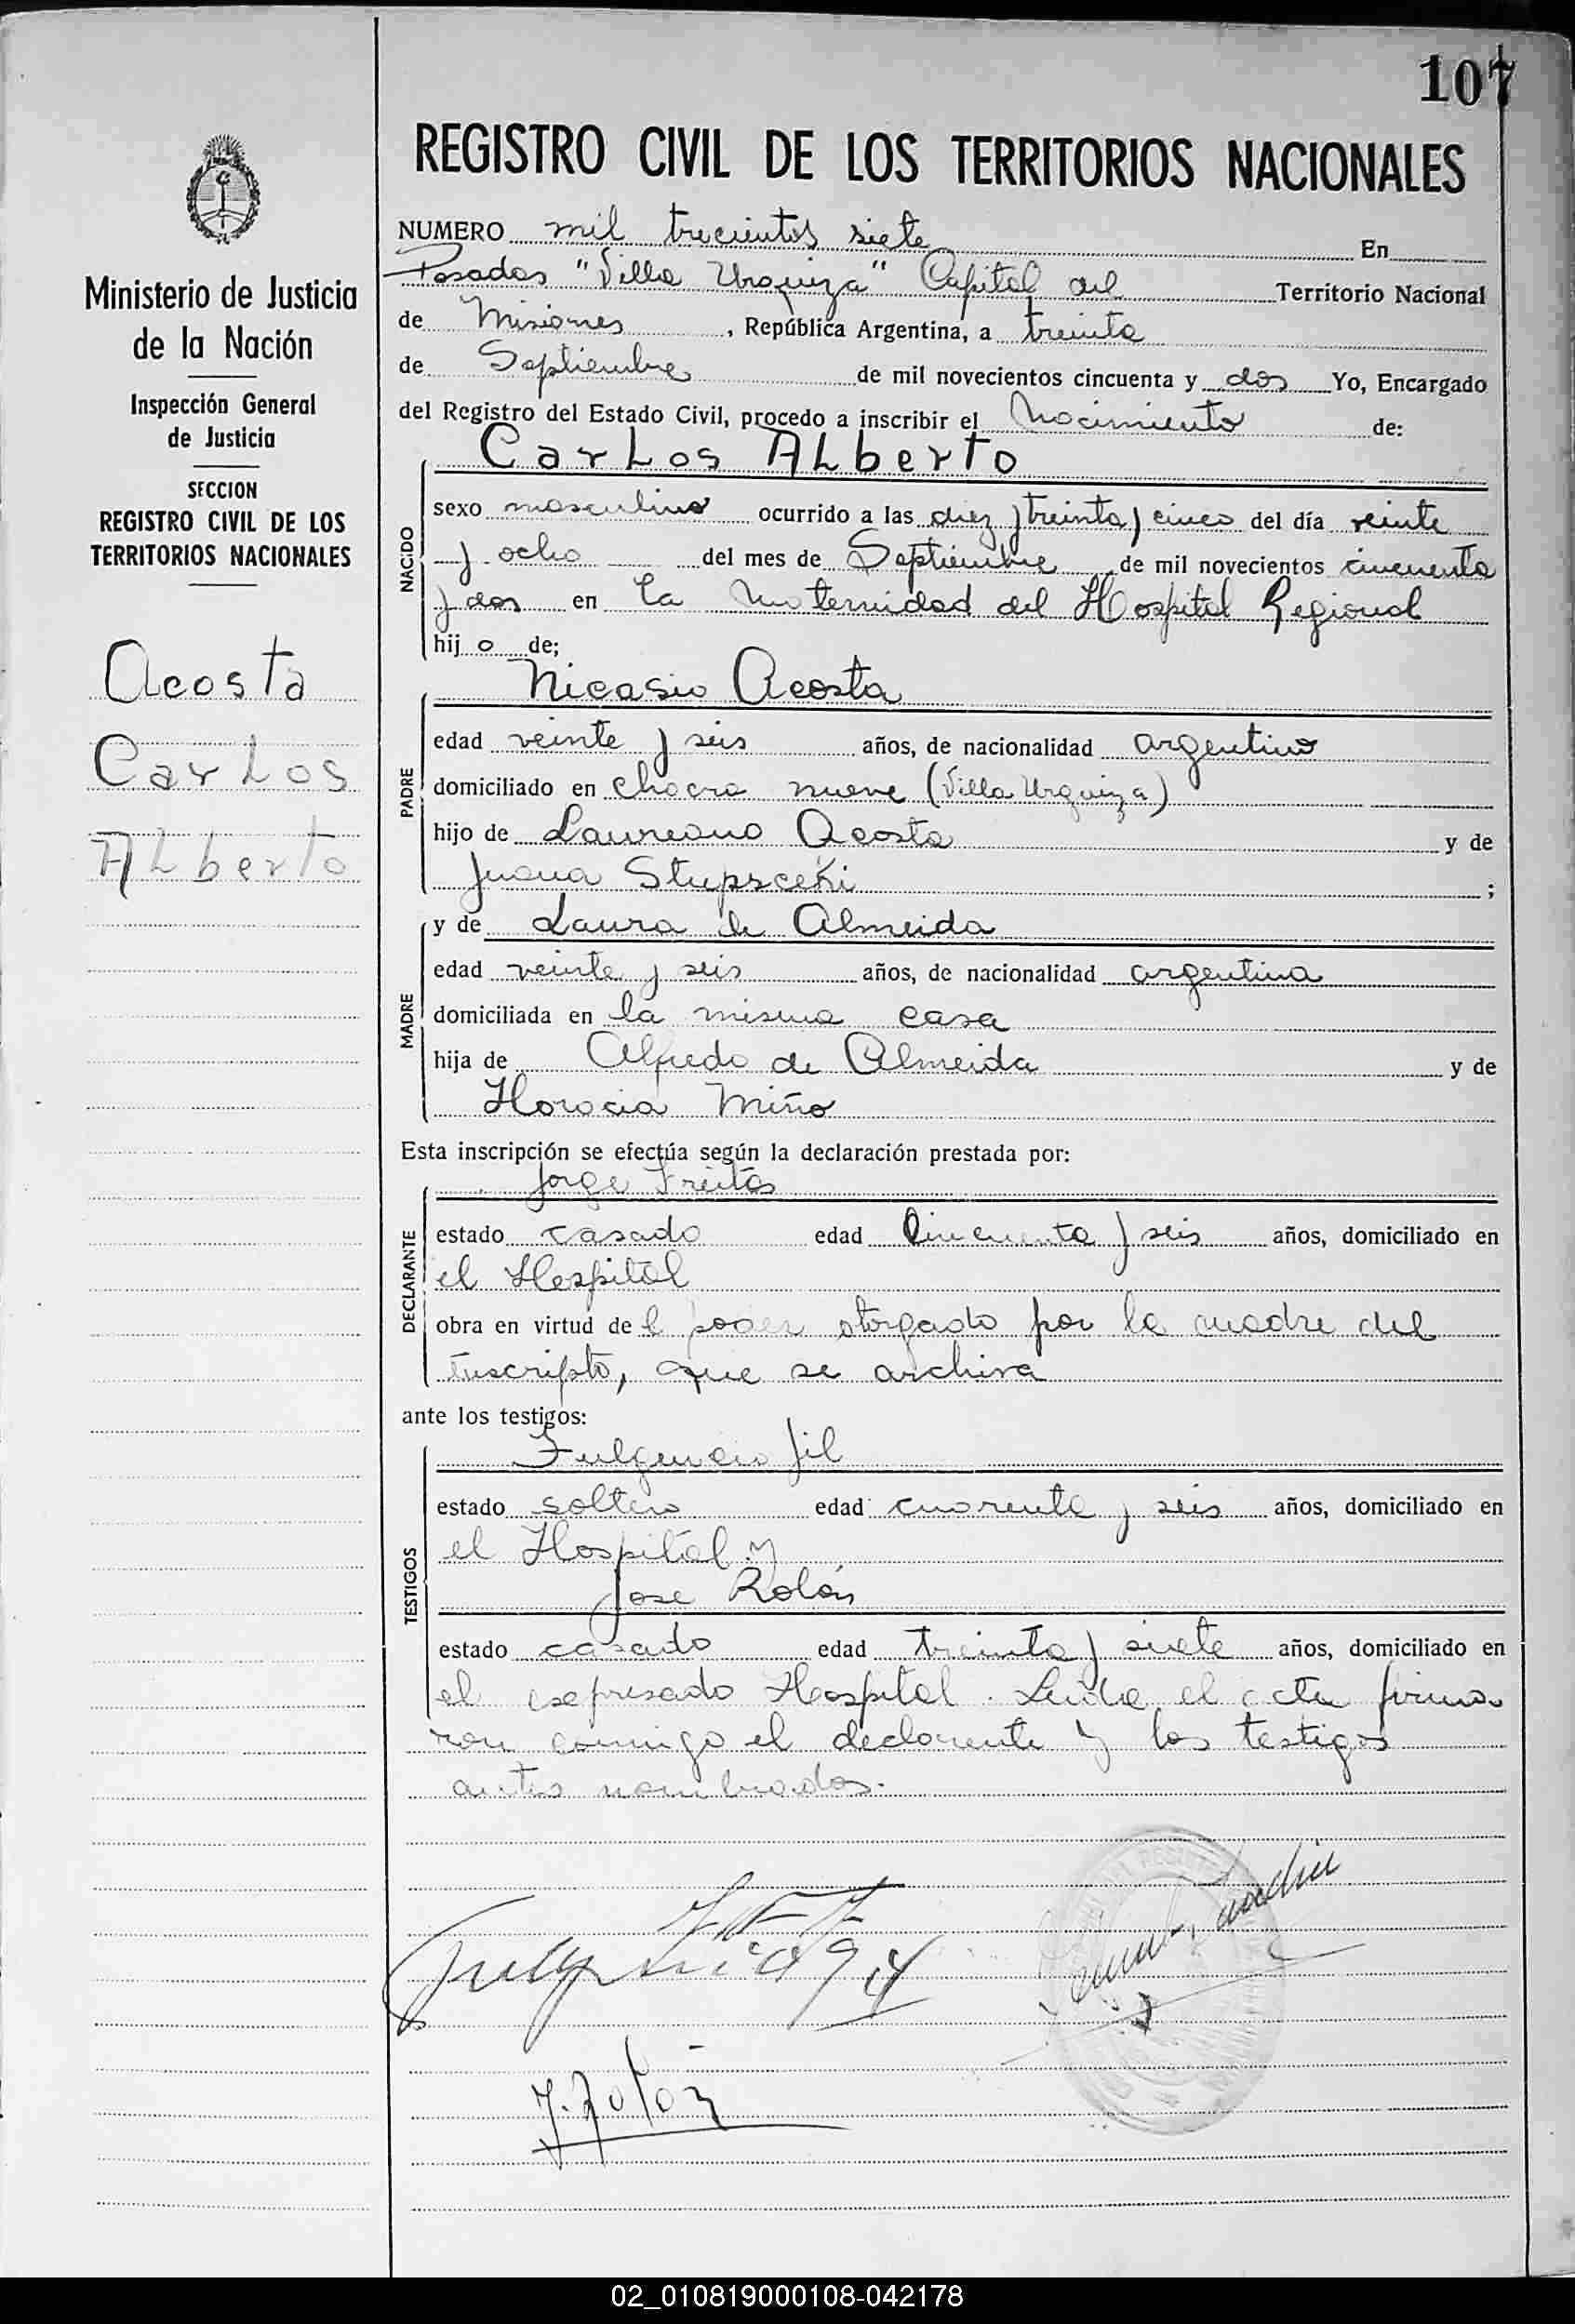 107
REGISTRO CIVIL DE LOS TERRITORIOS NACIONALES
NUMERO mil trecientos siete En
Posadas "Villa Urquiza" Capital del Territorio Nacional
de Misiones, República Argentina, a treinta
de Septiembre de mil novecientos cincuenta y dos Yo, Encargado
del Registro del Estado Civil, procedo a inscribir el Nacimiento de:
Carlos Alberto
NACIDO
sexo masculino ocurrido a las diez y treinta y cinco del día veinte
y ocho del mes de Septiembre de mil novecientos cincuenta
y dos en la Maternidad del Hospital Regional
hijo de;
Nicasio Acosta
PADRE
edad veinte y seis años, de nacionalidad argentino
domiciliado en chacra nueve (Villa Urquiza)
hijo de Laureano Acosta y de
Juana Stupsceki ;
y de Laura de Almeida
MADRE
edad veinte y seis años, de nacionalidad argentina
domiciliada en la misma casa
hija de Alfredo de Almeida y de
Horacia Miño
Esta inscripción se efectúa según la declaración prestada por:
Jorge Freitas
DECLARANTE
estado casado edad Cincuenta y seis años, domiciliado en
el Hospital
obra en virtud del poder otorgado por la madre del
inscripto, que se archiva
ante los testigos:
Fulgencio Jil
TESTIGOS
estado soltero edad cuarenta y seis años, domiciliado en
el Hospital y
Jose Rolón
estado casado edad treinta y siete años, domiciliado en
el expresado Hospital. Leida el acta firma-
ron conmigo el declarante y los testigos
antes nombrados.
J. Rolón
Ministerio de Justicia
de la Nación
Inspección General
de Justicia
SECCION
REGISTRO CIVIL DE LOS
TERRITORIOS NACIONALES
Acosta
Carlos
Alberto
02_010819000108-042178